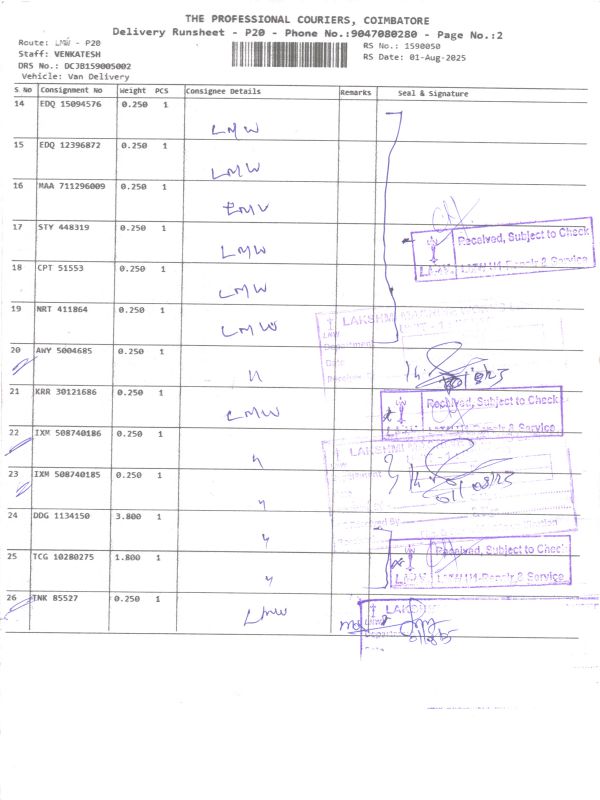 THE PROFESSIONAL COURIERS, COIMBATORE
Delivery Runsheet - P20 - Phone No.:9047080280 - Page No.:2
Route: LMW - P20
Staff: VENKATESH
DRS No.: DCJB159005002
Vehicle: Van Delivery
RS No.: 1590050
RS Date: 01-Aug-2025
S.No Consignment No Weight PCS Consignee Details Remarks Seal & Signature
14 EDQ 15094576 0.250 1
LMW
15 EDQ 12396872 0.250 1
LMW
16 MAA 711296009 0.250 1
LMW
17 STY 448319 0.250 1
LMW
Received, Subject to Check
18 CPT 51553 0.250 1
LMW
19 NRT 411864 0.250 1
LMW
LAKSHMI
20 AWY 5004685 0.250 1
"
21 KRR 30121686 0.250 1
LMW
Received, Subject to Check
22 IXM 508740186 0.250 1
"
LAKSHMI
23 IXM 508740185 0.250 1
"
24 DDG 1134150 3.800 1
"
Received, Subject to Check
25 TCG 10280275 1.800 1
"
26 INK 85527 0.250 1
LMW